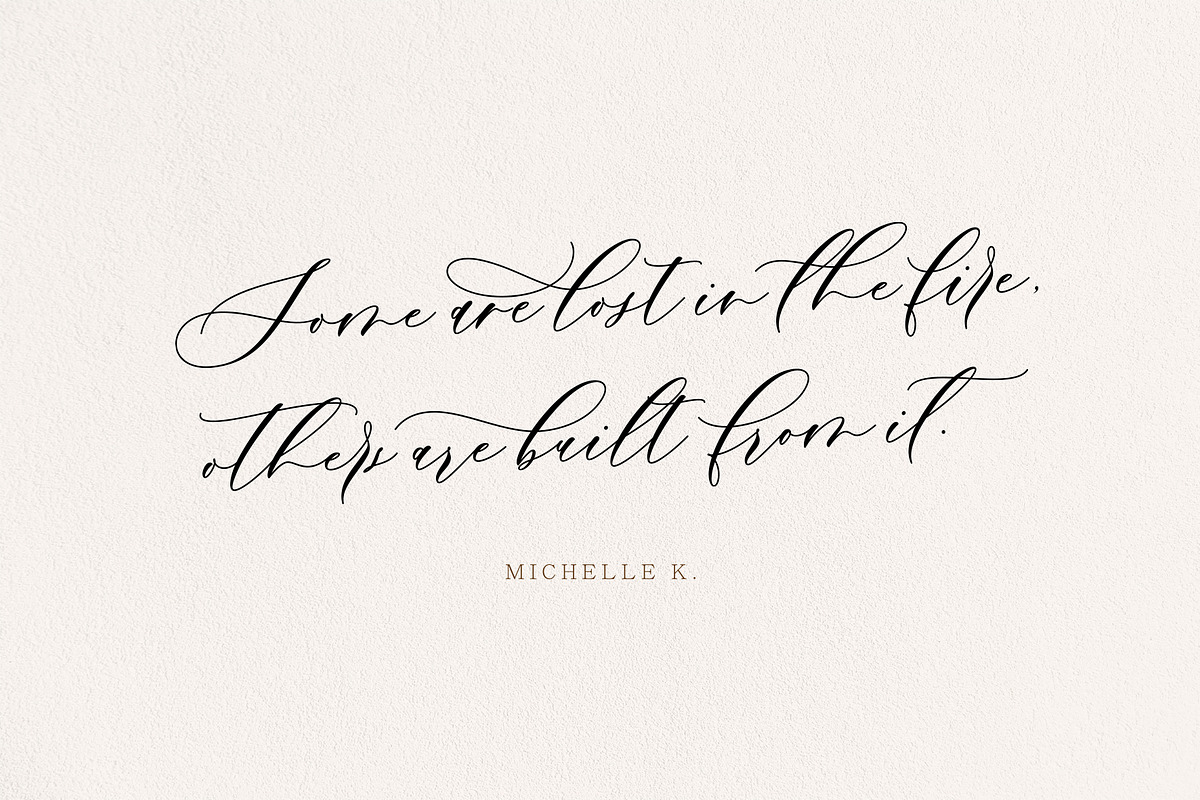 Some are lost in the fire,
others are built from it.
MICHELLE K.